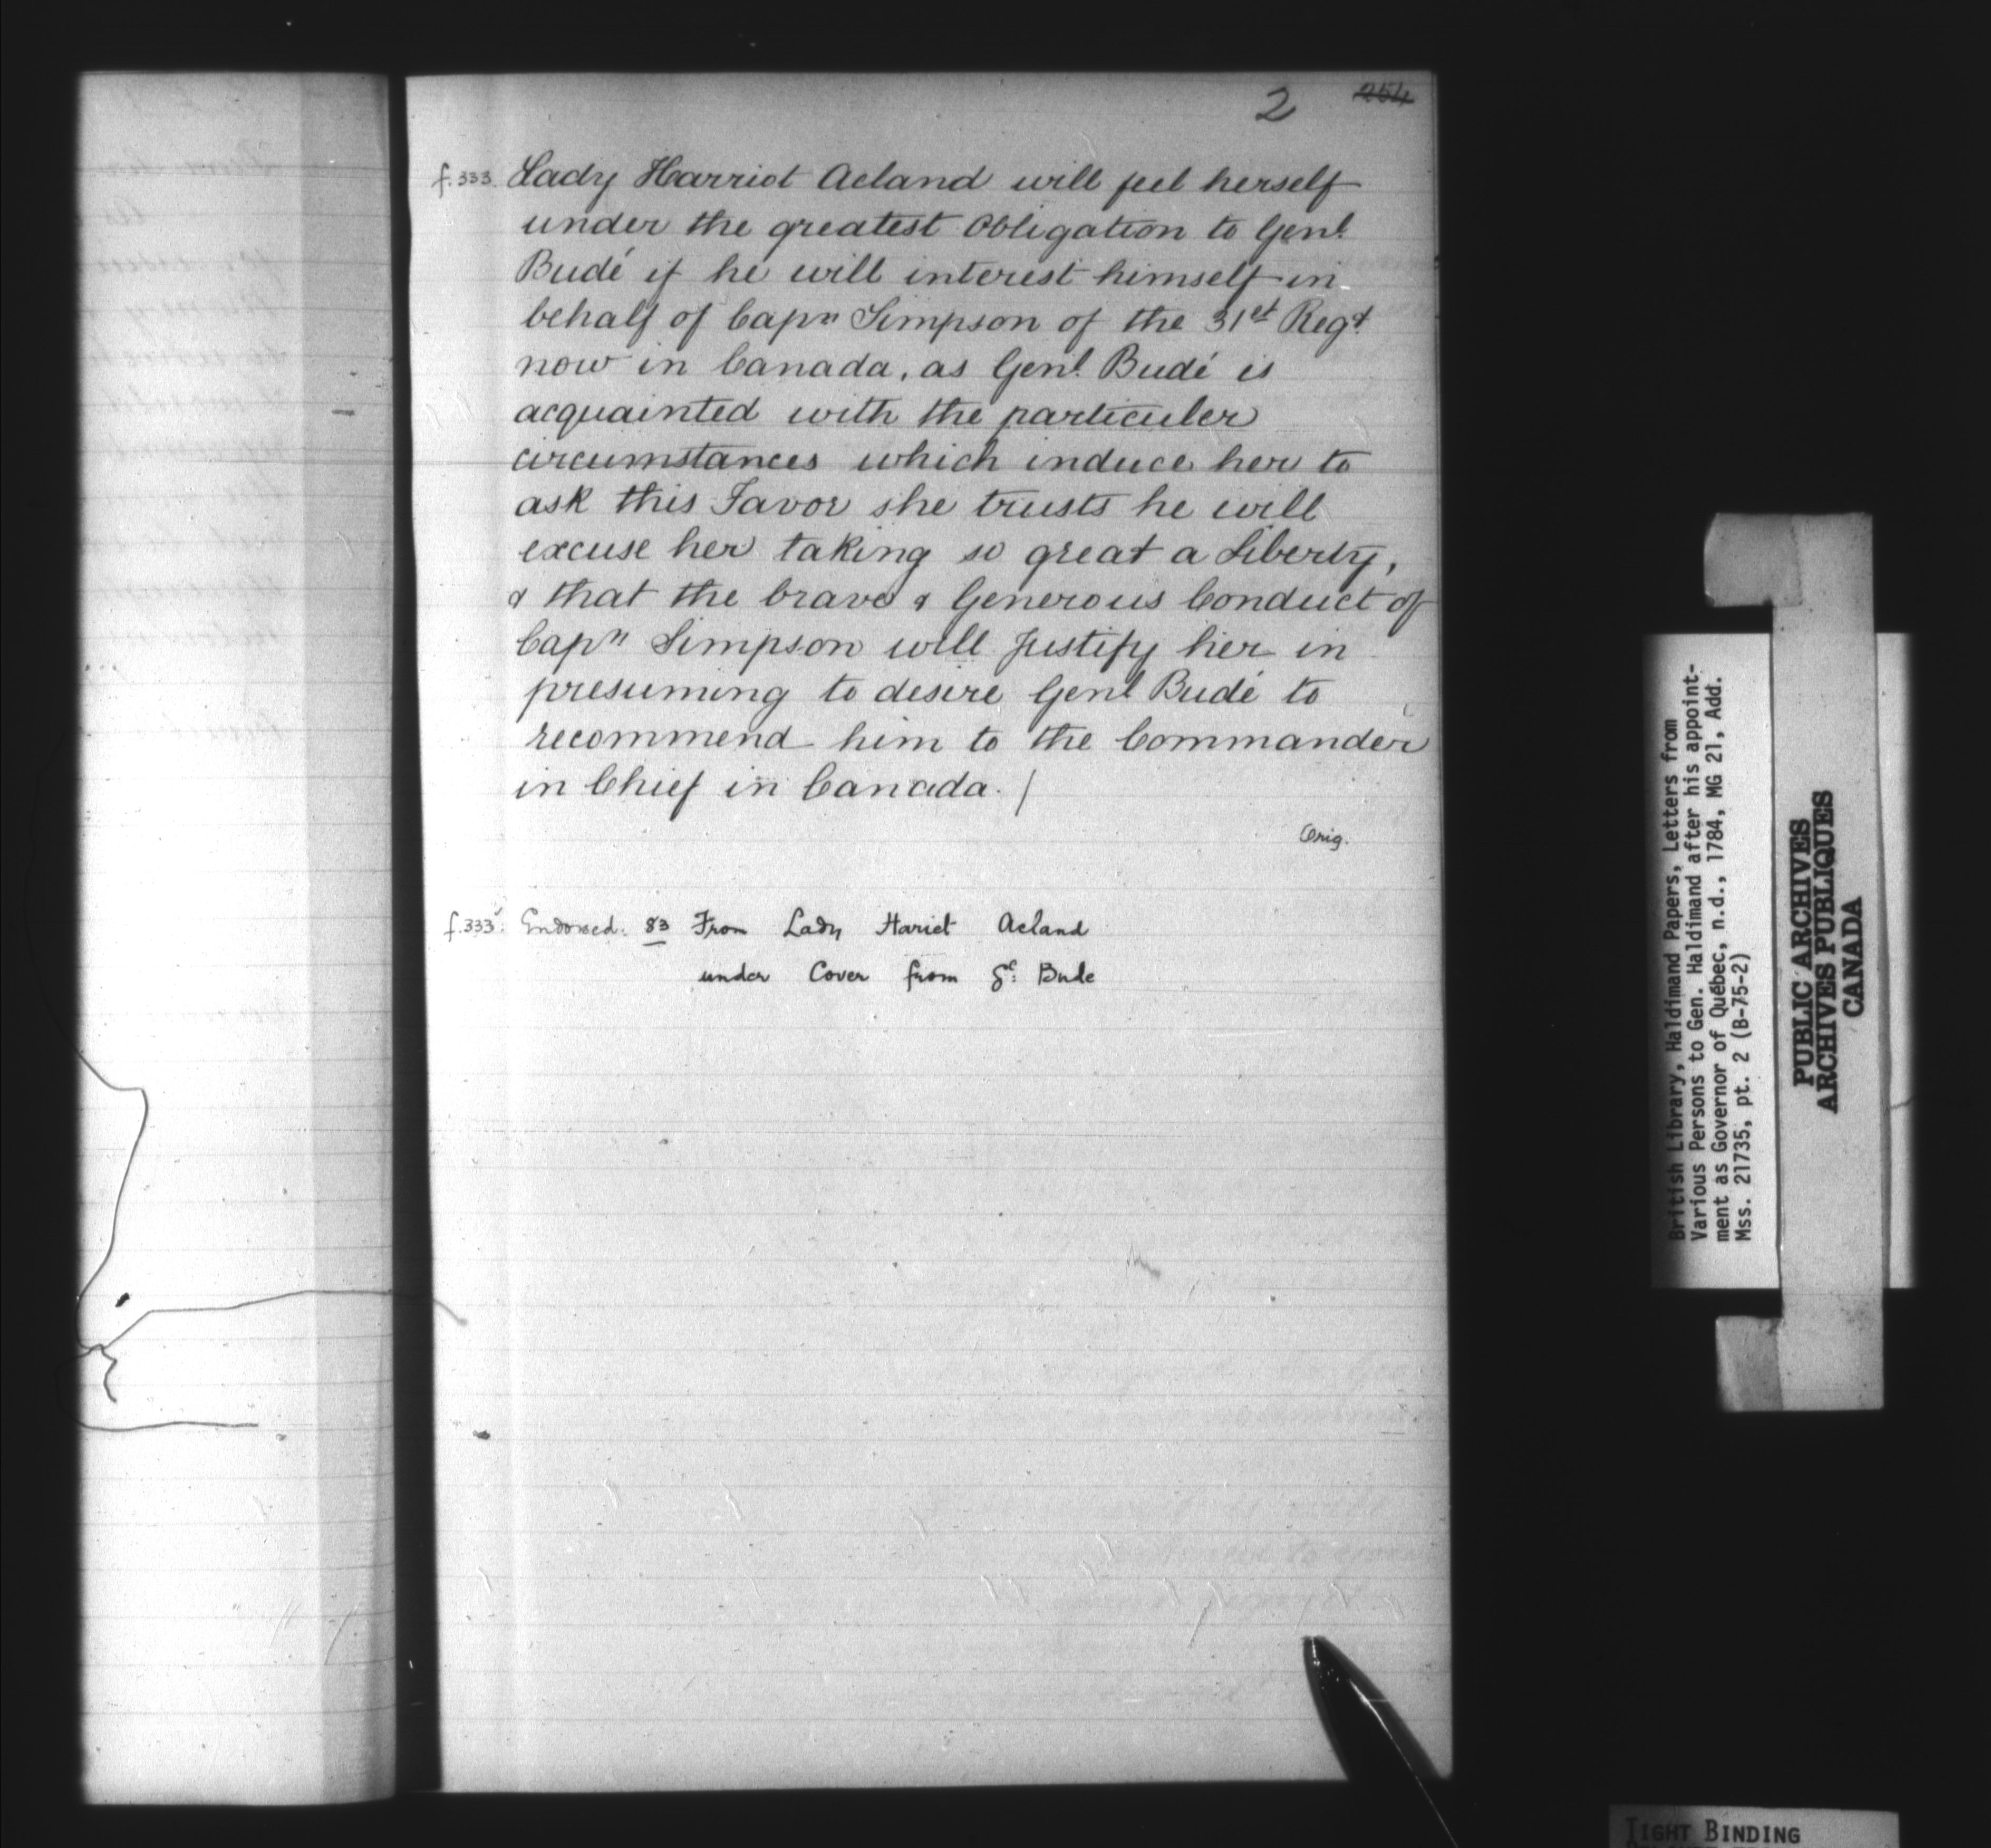 2 254
f.333. Lady Harriot Acland will feel herself
under the greatest Obligation to Genl.
Budé if he will interest himself in
behalf of Capn Simpson of the 31st Regt.
now in Canada, as Genl. Budé is
acquainted with the particuler
circumstances which induce her to
ask this Favor she trusts he will
excuse her taking so great a Liberty,
& that the brave & Generous Conduct of
Capn Simpson will Justify her in
presuming to desire Genl Budé to
recommend him to the Commander
in Chief in Canada. /
Orig.
f.333v: Endorsed: 83 From Lady Hariet Acland
under Cover from Gl: Bude
British Library, Haldimand Papers, Letters from
Various Persons to Gen. Haldimand after his appoint-
ment as Governor of Québec, n.d., 1784, MG 21, Add.
Mss. 21735, pt. 2 (B-75-2)
PUBLIC ARCHIVES
ARCHIVES PUBLIQUES
CANADA
TIGHT BINDING